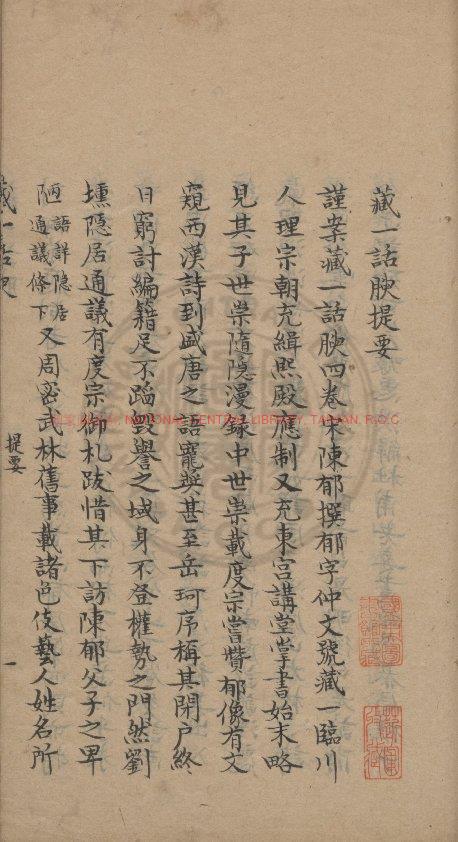 藏一話腴提要
謹案藏一話腴四卷宋陳郁撰郁字仲文號藏一臨川
人理宗朝充緝熙殿應制又充東宮講堂掌書始末略
見其子世崇隨隱漫錄中世崇載度宗嘗贊郁像有文
窺西漢詩到盛唐之語寵奬甚至岳珂序稱其閉戶終
日窮討編籍足不蹈毀譽之域身不登權勢之門然劉
壎隱居通議有度宗御札跋惜其下訪陳郁父子之卑
陋語詳隱居通議條下又周密武林舊事載諸色伎藝人姓名所
藏一話腴
提要
一
國家圖書館 NATIONAL CENTRAL LIBRARY, TAIWAN, R.O.C